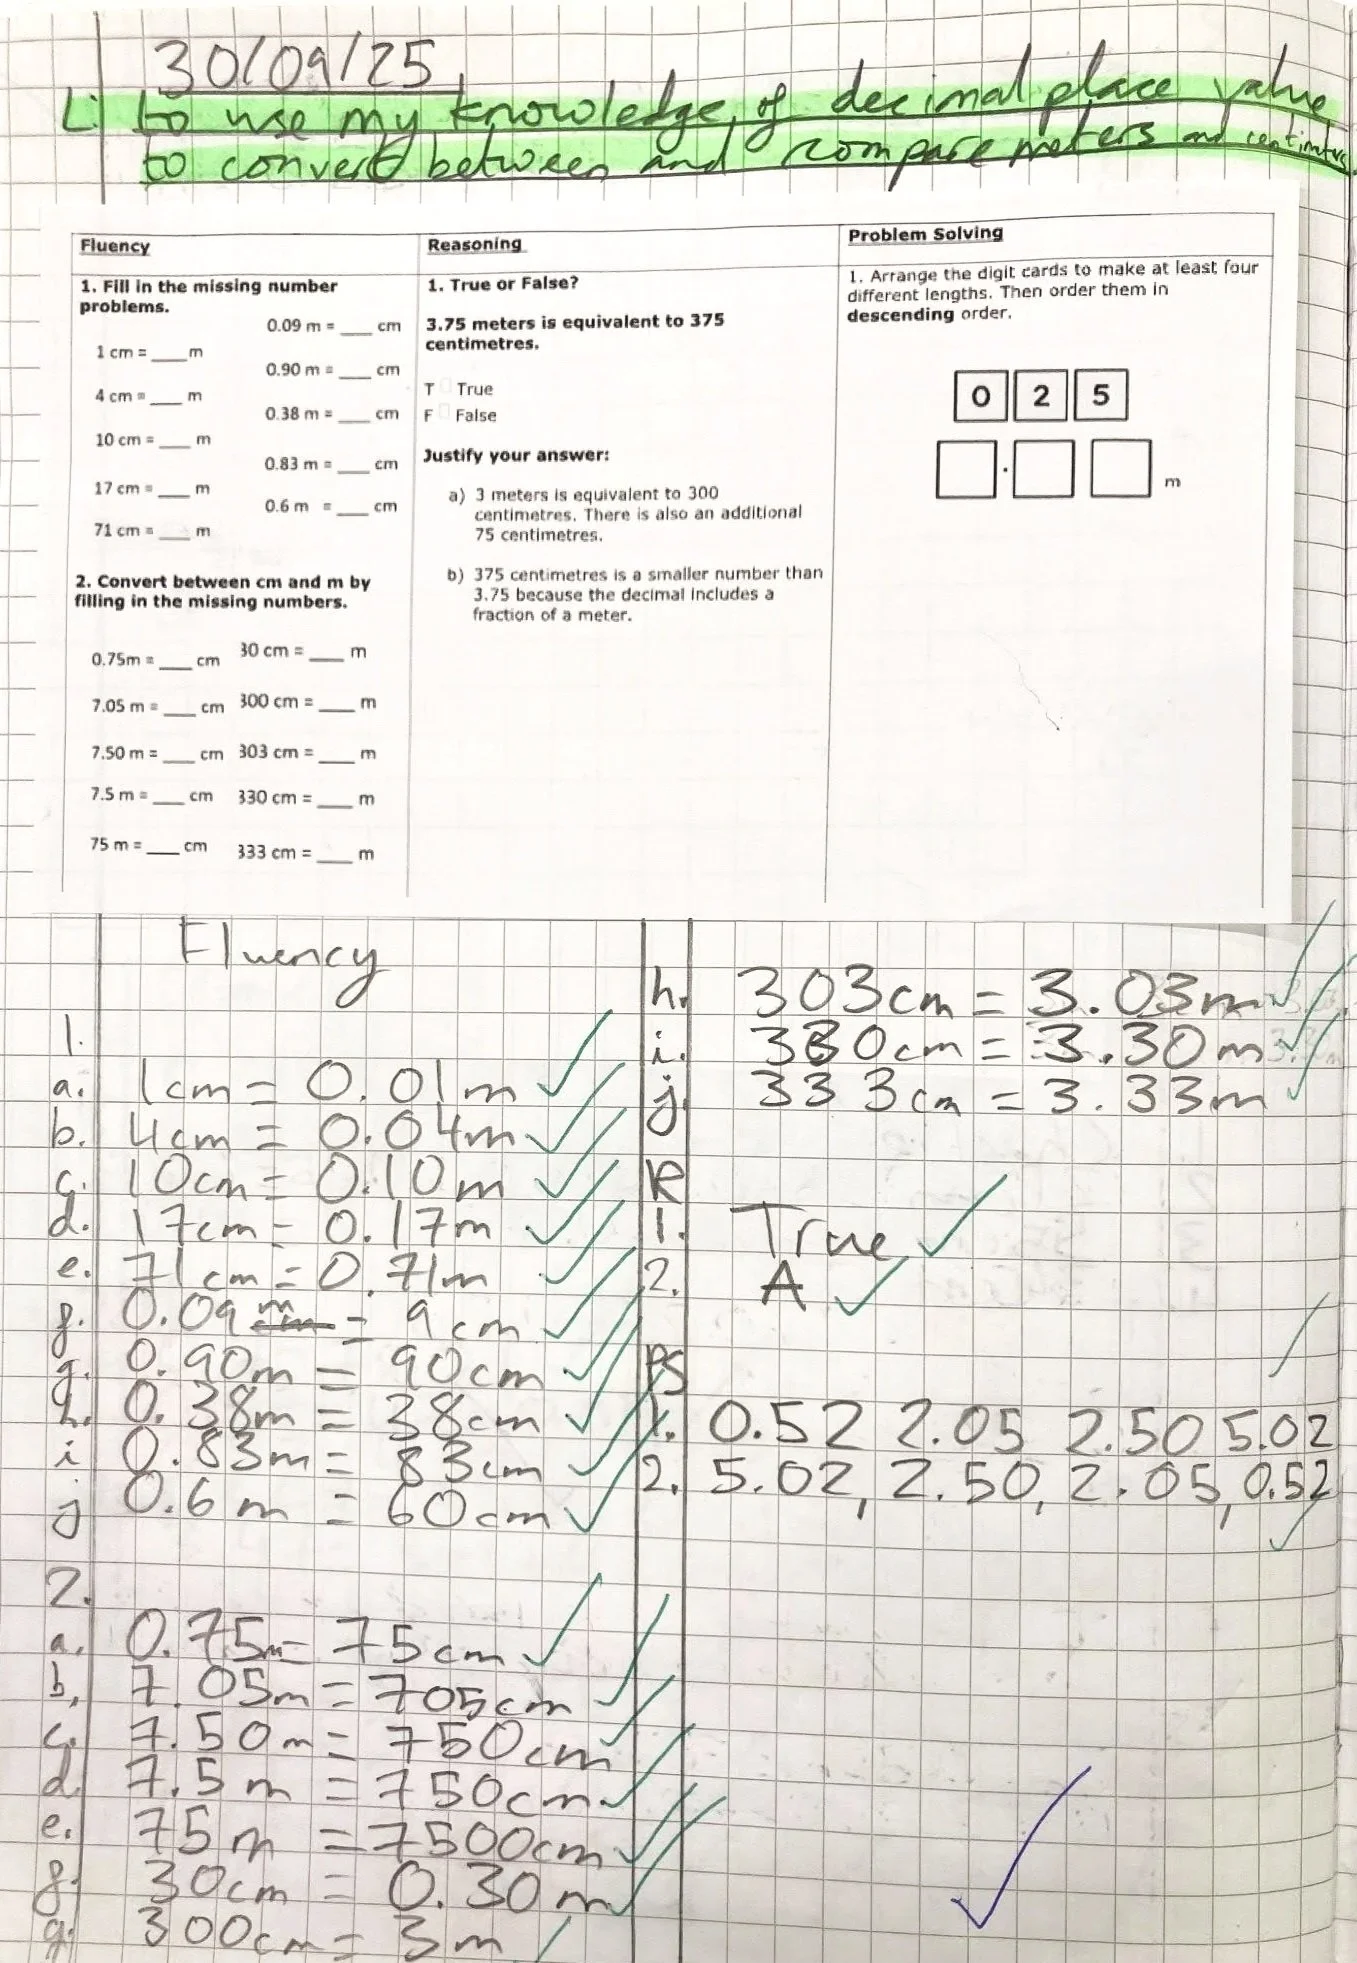 30/09/25
L: to use my knowledge of decimal place value
to convert between and compare meters and centimetres
Fluency
1. Fill in the missing number
problems.
0.09 m = ___ cm
1 cm = ___ m
0.90 m = ___ cm
4 cm = ___ m
0.38 m = ___ cm
10 cm = ___ m
0.83 m = ___ cm
17 cm = ___ m
0.6 m = ___ cm
71 cm = ___ m
2. Convert between cm and m by
filling in the missing numbers.
0.75m = ___ cm 30 cm = ___ m
7.05 m = ___ cm 300 cm = ___ m
7.50 m = ___ cm 303 cm = ___ m
7.5 m = ___ cm 330 cm = ___ m
75 m = ___ cm 333 cm = ___ m
Reasoning
1. True or False?
3.75 meters is equivalent to 375
centimetres.
T True
F False
Justify your answer:
a) 3 meters is equivalent to 300
centimetres. There is also an additional
75 centimetres.
b) 375 centimetres is a smaller number than
3.75 because the decimal includes a
fraction of a meter.
Problem Solving
1. Arrange the digit cards to make at least four
different lengths. Then order them in
descending order.
0 2 5
. m
Fluency
1.
a. 1cm = 0.01m
b. 4cm = 0.04m
c. 10cm = 0.10m
d. 17cm = 0.17m
e. 71cm = 0.71m
f. 0.09 m = 9cm
g. 0.90m = 90cm
h. 0.38m = 38cm
i 0.83m = 83cm
j 0.6m = 60cm
2.
a. 0.75m = 75cm
b. 7.05m = 705cm
c. 7.50m = 750cm
d. 7.5m = 750cm
e. 75m = 7500cm
f. 30cm = 0.30m
g. 300cm = 3m
h. 303cm = 3.03m
i. 330cm = 3.30m
j. 333cm = 3.33m
R
1. True
2. A
PS
1. 0.52 2.05 2.50 5.02
2. 5.02, 2.50, 2.05, 0.52